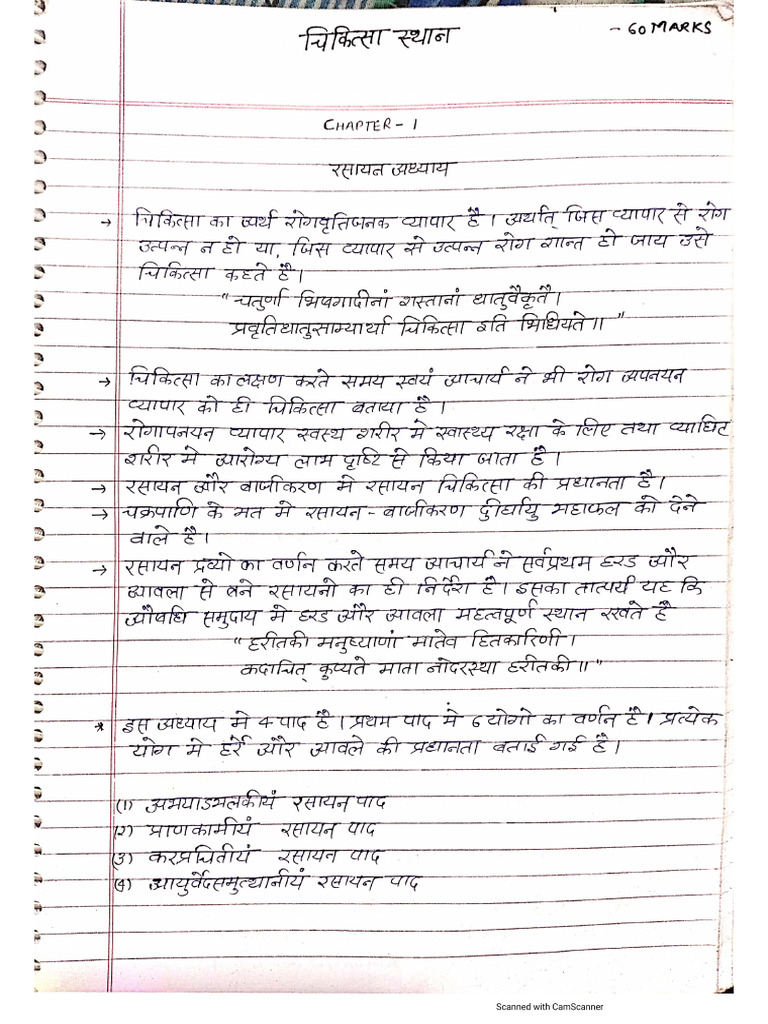 चिकित्सा स्थान
- 60 MARKS
CHAPTER - 1
रसायन अध्याय
→ चिकित्सा का अर्थ रोगवृत्तिजनक व्यापार है। अर्थात् जिस व्यापार से रोग
उत्पन्न न हो या, जिस व्यापार से उत्पन्न रोग शान्त हो जाय उसे
चिकित्सा कहते है।
"चतुर्णा भिषगादीनां शस्तानां धातुवैकृतै।
प्रवृतिधातुसाम्यार्था चिकित्सा इति भिधियते॥"
→ चिकित्सा का लक्षण करते समय स्वयं आचार्य ने भी रोग अपनयन
व्यापार को ही चिकित्सा बताया है।
→ रोगापनयन व्यापार स्वस्थ शरीर मे स्वास्थ्य रक्षा के लिए तथा व्याधित
शरीर मे आरोग्य लाभ दृष्टि से किया जाता है।
→ रसायन और वाजीकरण मे रसायन चिकित्सा की प्रधानता है।
→ चक्रपाणि के मत मे रसायन - वाजीकरण दुीर्घायु महाफल को देने
वाले है।
→ रसायन द्रव्यो का वर्णन करते समय आचार्य ने सर्वप्रथम हरड और
आवला से बने रसायनो का ही निर्देश है। इसका तात्पर्य यह कि
औषधि समुदाय मे हरड और आवला महत्वपूर्ण स्थान रखते है
"हरीतकी मनुष्याणां मातेव हितकारिणी।
कदाचित् कुप्यते माता नोदरस्था हरीतकी॥"
* इस अध्याय मे 4 पाद है। प्रथम पाद में 6 योगो का वर्णन है। प्रत्येक
योग मे हर्रे और आवले की प्रधानता बताई गई है।
(1) अभयाऽमलकीयं रसायन पाद
(2) प्राणकामीयं रसायन पाद
(3) करप्रचितीयं रसायन पाद
(4) आयुर्वेदसमुत्थानीयं रसायन पाद
Scanned with CamScanner